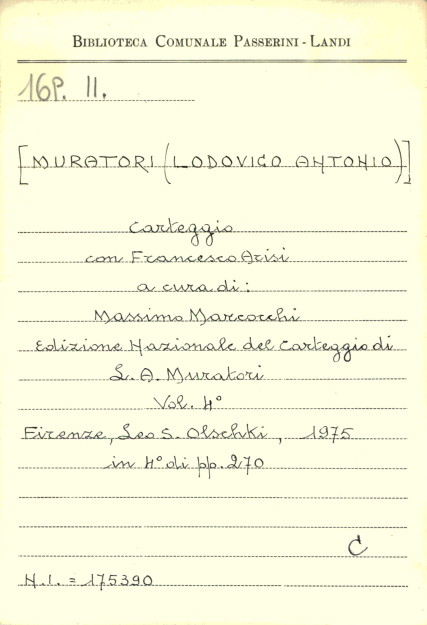 BIBLIOTECA COMUNALE PASSERINI - LANDI
16P. II.
[MURATORI (LODOVICO ANTONIO)]
Carteggio
con Francesco Arisi
a cura di:
Massimo Marcocchi
Edizione Nazionale del Carteggio di
L. A. Muratori
Vol. 4°
Firenze, Leo S. Olschki, 1975
in 4° di pp. 270
C
N.I. = 175390